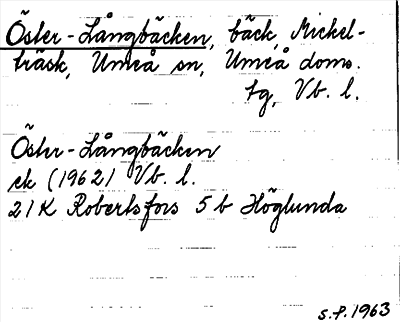 Öster-Långbäcken, bäck, Mickel-
träsk, Umeå sn, Umeå doms.
tg, Vb. l.
Öster-Långbäcken
ek (1962) Vb. l.
21 K Robertsfors 5 b Höglunda
S.P. 1963